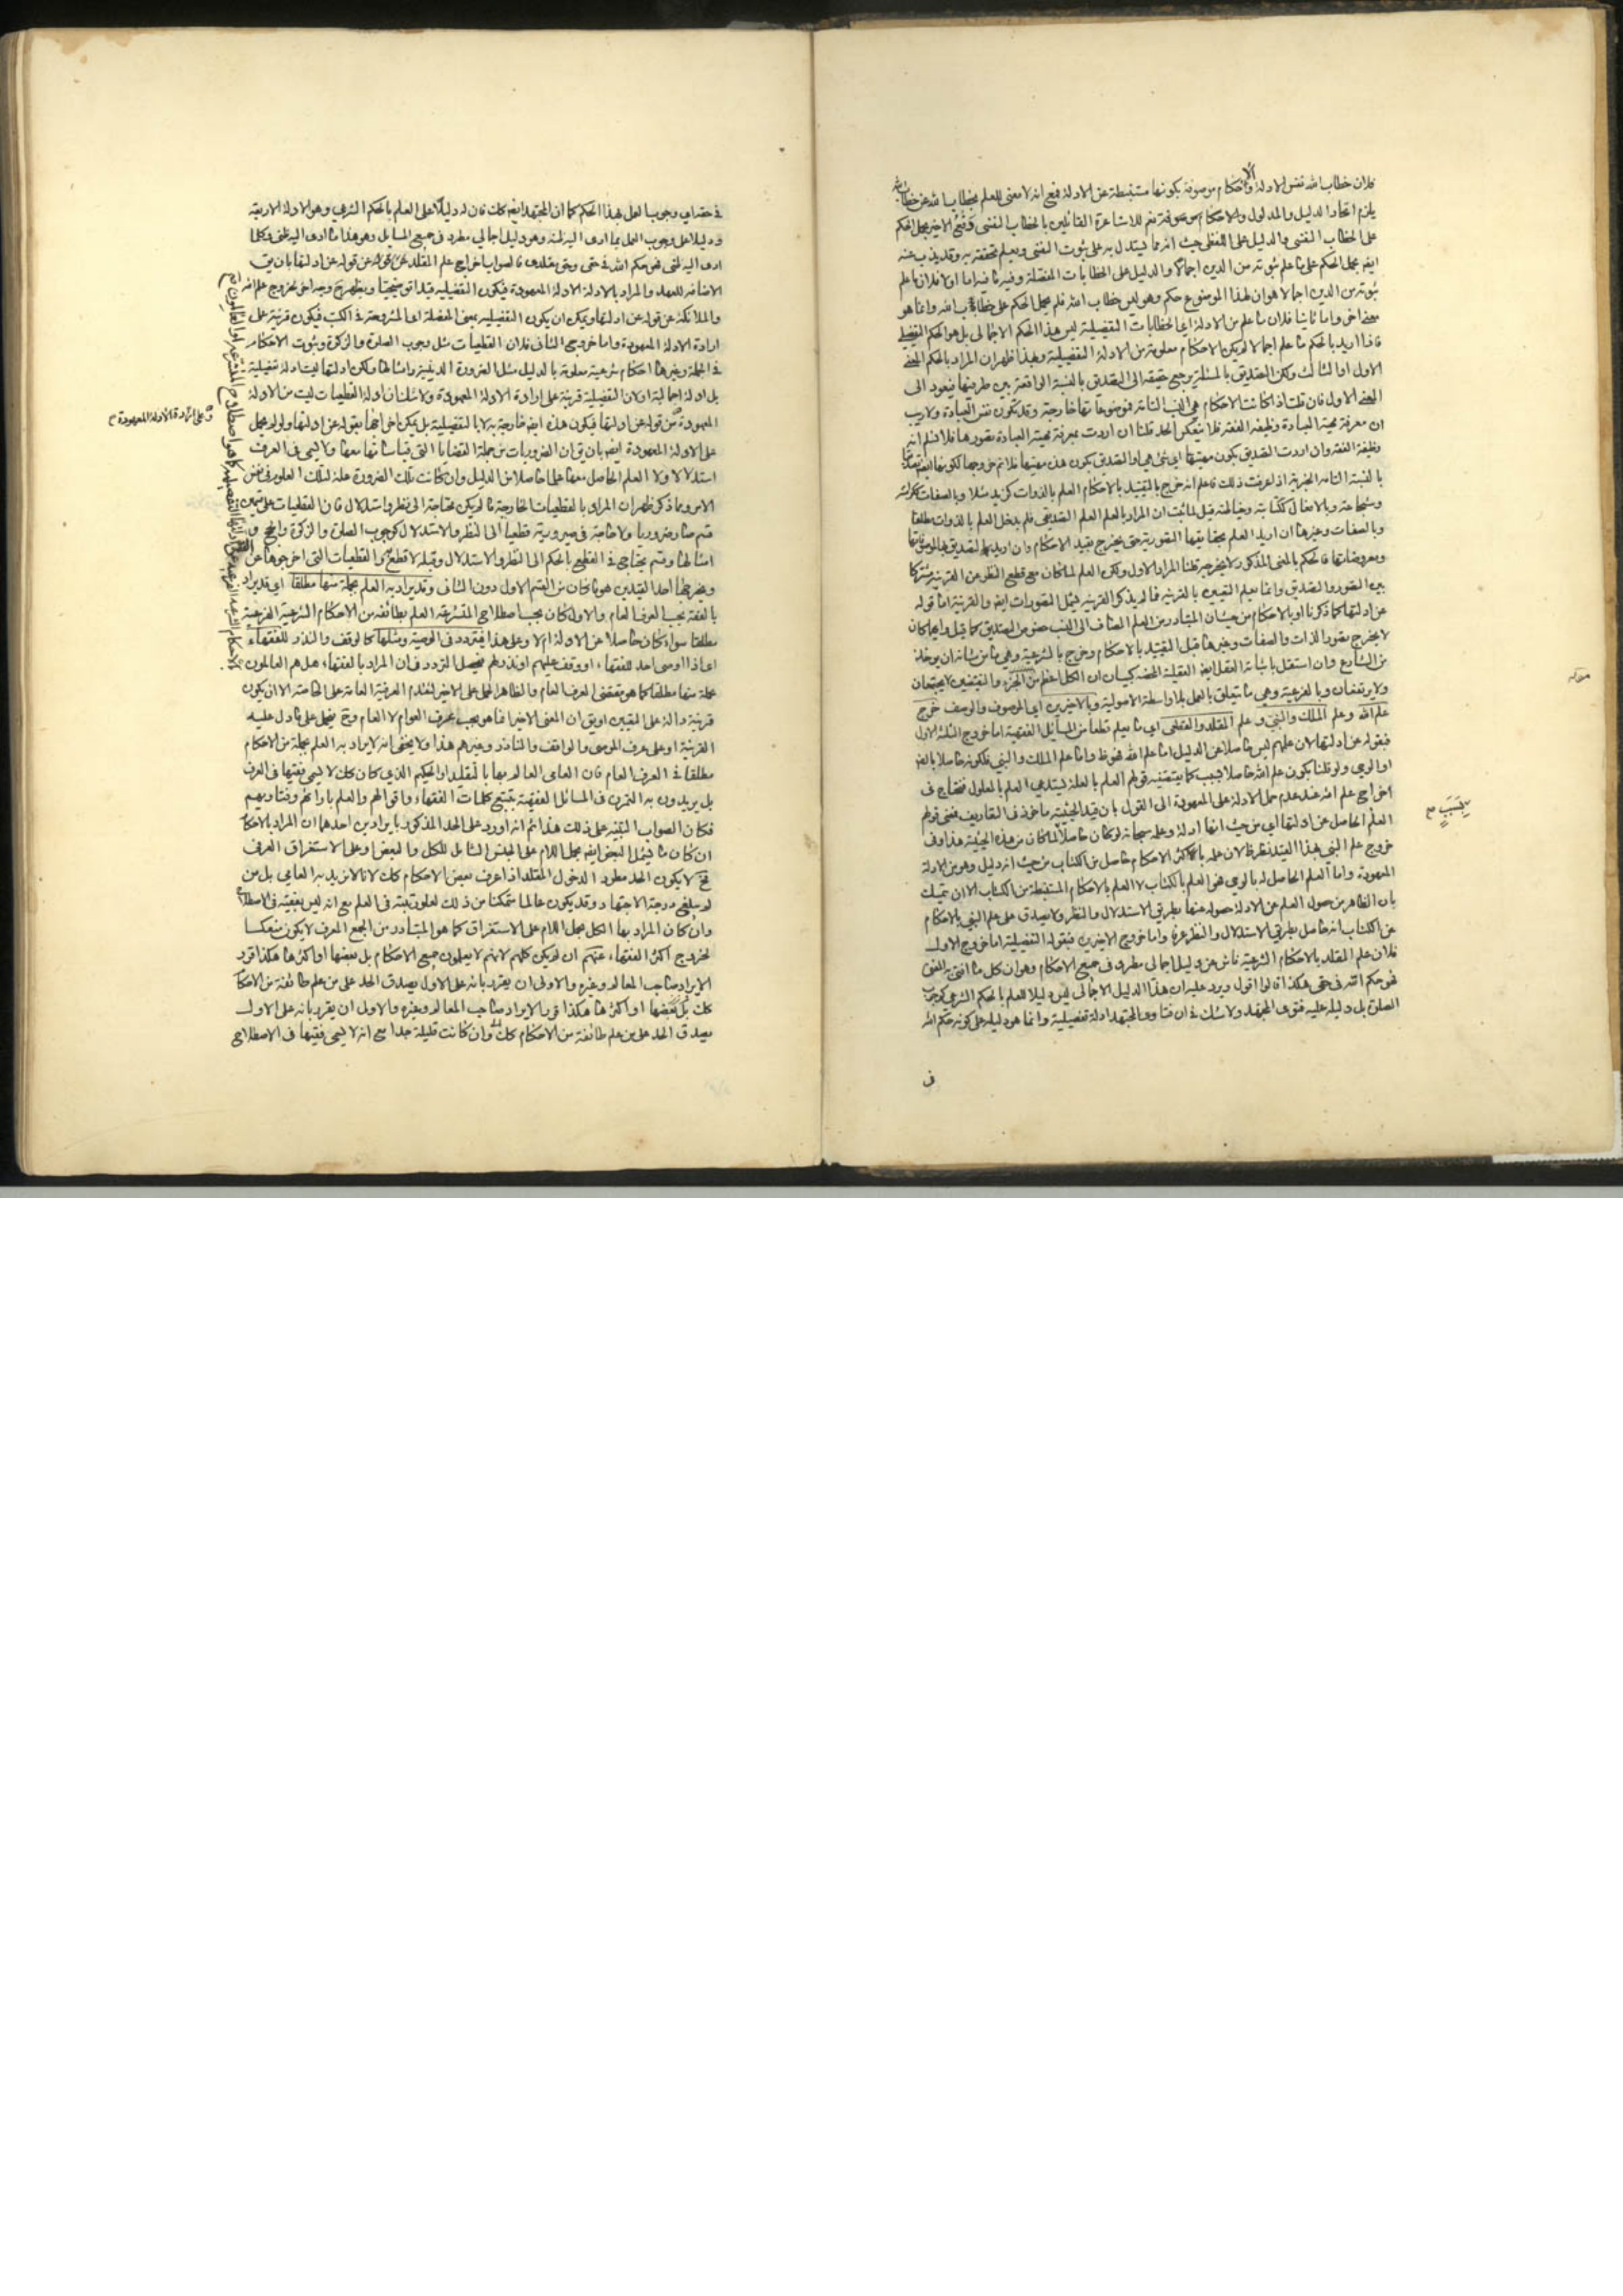 فلان خطاب الله نفس الادلة والاحكام موصوفة بكونها مستنبطة عن الادلة فمع انه لا معنى للعلم بخطاب الله عن خطاب الله
يلزم اتحاد الدليل والمدلول والاحكام للاشاعرة القائلين بالخطاب النفسى الاخير بحمل الحكم
على الخطاب النفسى والدليل على اللفظى حيث انه مما يستدل به على ثبوت النفسى ويعلم تحققه به وقد يذب عنه
ايضا بحمل الحكم على ما علم ثبوته من الدين اجمالا والدليل على الخطابات المفصلة وفيه ما فيه اما اولا فلان ما علم
ثبوته من الدين اجمالا هو ان لهذا الموضوع حكم وهو ليس خطاب الله فلم يحمل الحكم على خطاب الله وانما هو
معنى اخر واما ثانيا فلان ما علم من الادلة اى الخطابات التفصيلية ليس هذا الحكم الاجمالى بل هو الحكم التفصيلى
فاذا اريد بالحكم ما علم اجمالا لم يكن الاحكام معلومة من الادلة التفصيلية وبهذا ظهر ان المراد بالحكم المعنى
الاول او الثالث ولكن التصديق بالمسئلة يرجع حقيقة الى التصديق بالنسبة الواقعة بين طرفيها فيعود الى
المعنى الاول فان قلت اذا كانت الاحكام هى النسب التامة فموضوعاتها خارجة وقد تكون نفس العبادة ولا ريب
ان معرفة مهية العبادة وظيفة الفقه فلا ينعكس الحد قلنا ان اردت بمعرفة مهية العبادة تصورها فلا نسلم انه
وظيفة الفقه وان اردت التصديق بكون مهيتها اى شئ هى او التصديق بكون هذه مهيتها فلا نم خروجها لكونها ايضا تصديقا
بالنسبة التامة الخبرية اذا عرفت ذلك فاعلم انه خرج بالتقييد بالاحكام العلم بالذوات كزيد مثلا وبالصفات ككرمه
وشجاعته وبالافعال ككتابته وخياطته قيل لما ثبت ان المراد بالعلم العلم التصديقى فلم يدخل العلم بالذوات مطلقا
وبالصفات وغيرها ان اريد العلم بحقايقها التصورية حتى يخرج بقيد الاحكام وان اريد بها التصديق
ومعروضاتها فالحكم بالمعنى المذكور لا يخرجه قلنا المراد الاول ولكن العلم لما كان مع قطع النظر عن القرينة مشتركا
بين التصور والتصديق وانما يعلم التعيين بالقرينة فما لم يذكر القرينة يشمل التصورات ايضا والقرينة اما قوله
عن ادلتها كما ذكرنا او بالاحكام من حيث ان المتبادر من العلم المضاف الى النسب خصوص التصديق كما قيل وايهما كان
لا يخرج تصور الذات والصفات وغيرها قبل التقييد بالاحكام وخرج بالشرعية وهى ما من شانه ان يوخذ
من الشارع وان استقل باثباته العقل ايضا العقلية المحضة كبيان ان الكل اعظم من الجزء والنقيضين لا يجتمعان
ولا يرتفعان وبالفرعية وهى ما يتعلق بالعمل بلا واسطة الاصولية وبالاخيرين اى الموصوف والوصف خرج
علم الله وعلم الملك والنبى وعلم المقلد والقطعى اى ما يعلم قطعا من المسائل الفقهية اما خروج الثلثة الاول
فبقوله عن ادلتها لان علمهم ليس حاصلا عن الدليل اما علم الله فهو ظ واما علم الملك والنبى فلكونه حاصلا بالضر
او الوحى ولو قلنا بكون علم الله حاصلا بسبب كما يقتضيه قولهم العلم بالعلة يستدعى العلم بالمعلول فنحتاج فى
اخراج علم الله عند عدم حمل الادلة على المعهودة الى القول بان قيد الحيثية ماخوذ فى التعاريف فمعنى قولهم
العلم الحاصل عن ادلتها اى من حيث انها ادلة وعلمه سبحانه لو كان حاصلا لما كان من هذه الحيثية هذا وفى
خروج علم النبى بهذا القيد نظر ظ لان علمه باكثر الاحكام حاصل من الكتاب من حيث انه دليل وهو من الادلة
المعهودة واما العلم الحاصل له بالوحى هو العلم بالكتاب لا العلم بالاحكام المستنبطة من الكتاب الا ان يتمسك
بان الظاهر من حصول العلم عن الادلة حصوله عنها بطريق الاستدلال والنظر ولا يصدق على علم النبى بالاحكام
عن الكتاب انه حاصل بطريق الاستدلال والنظر عرفا واما خروج الاخيرين فبقوله التفصيلية اما خروج الاول
فلان علم المقلد بالاحكام الشرعية ناش عن دليل اجمالى مطرد فى جميع الاحكام وهو ان كل ما افتى به المفتى
فهو حكم الله فى حقى هكذا قالوا اقول ويرد عليه ان هذا الدليل الاجمالى ليس دليلا للعلم بالحكم الشرعى كوجوب
الصلوة بل دليله عليه فتوى المجتهد ولا شك فى ان فتاوى المجتهد ادلة تفصيلية وانما هو دليله على كونه حكم الله
فى
فى حقه اى وجوب العمل بهذا الحكم كما ان المجتهد ايضا كك فان له دليلا على العلم بالحكم الشرعى وهو الادلة الاربعة
ودليلا على وجوب العمل بما ادى اليه ظنه وهو دليل اجمالى مطرد فى جميع المسايل وهو هذا ما ادى اليه ظنى وكلما
ادى اليه ظنى فهو حكم الله فى حقى وحق مقلدى فالصواب اخراج علم المقلد عن قوله عن ادلتها بان يق
الاضافة للعهد والمراد بالادلة الادلة المعهودة فيكون التفصيلية قيدا توضيحيا ويظهر ح وجه اخر لخروج علم الله
والملائكة عن قوله عن ادلتها ويمكن ان يكون التفصيلية بمعنى المفصلة اى المشروحة فى الكتب فيكون قرينة على
ارادة الادلة المعهودة واما خروج الثانى فلان القطعيات مثل وجوب الصلوة والزكوة وثبوت الاحكام
فى الجملة وغيرها احكام شرعية معلومة بالدليل مثل الضرورة الدينية وامثالها ولكن ادلتها ليست ادلة تفصيلية
بل ادلة اجمالية او لان التفصيلية قرينة على ارادة الادلة المعهودة ولا شك ان ادلة القطعيات ليست من الادلة
المعهودة من قوله عن ادلتها فيكون هذه ايضا خارجة به لا بالتفصيلية بل يمكن اخراجها بقوله عن ادلتها ولو لم يحمل
على الادلة المعهودة ايضا بان يق ان الضروريات من جملة القضايا التى قياساتها معها ولا يسمى فى العرف
استدلالا ولا العلم الحاصل معها علما حاصلا من الدليل وان كانت تلك الضرورة علة لتلك العلوم فى نفس
الامر ومما ذكر ظهر ان المراد بالقطعيات الخارجة ما لم يكن محتاجة الى نظر واستدلال فان القطعيات على قسمين
قسم صار ضروريا ولا حاجة فى صيرورية قطعيا الى النظر والاستدلال كوجوب الصلوة والزكوة والحج و
امثالها وقسم يحتاج فى القطع بالحكم الى النظر والاستدلال وقبله لا قطع والقطعيات التى اخرجوها عن
ويخرجها احد القيدين هو ما كان من القسم الاول دون الثانى وقد يراد به العلم بجملة منها مطلقا اى قد يراد
بالفقه بحسب العرف العام والاول كان بحسب اصطلاح المتشرعة العلم بطائفة من الاحكام الشرعية الفرعية
مطلقا سواء كان حاصلا عن الادلة ام لا وعلى هذا يتردد فى الوصية ومثلها كالوقف والنذر للفقهاء
اى اذا اوصى احد للفقهاء او وقف عليهم او نذر لهم فيحصل التردد فى ان المراد بالفقهاء هل هم العالمون
بجملة منها مطلقا كما هو مقتضى العرف العام والظاهر الحمل على الاخير لتقدم العرفية العامة على الخاصة الا ان يكون
قرينة دالة على التعيين او يق ان المعنى الاخير انما هو بحسب عرف العوام لا العام وح يحمل على ما دل عليه
القرينة او على عرف الموصى والواقف والناذر وغيرهم هذا ولا يخفى انه لا يراد به العلم بجملة من الاحكام
مطلقا فى العرف العام فان العامى العالم بها بالتقليد او الحكيم الذى كان كك لا يسمى فقيها فى العرف
بل يريدون به التمرن فى المسائل الفقهية بتتبع كلمات الفقهاء واقوالهم والعلم بارائهم وفتاويهم
فكان الصواب التنبيه على ذلك هذا ثم انه اورد على الحد المذكور بايرادين احدهما ان المراد بالاحكا
ان كان ما يشمل البعض ايضا بحمل اللام على الجنس الشامل للكل والبعض او على الاستغراق العرفى
فح لا يكون الحد مطردا لدخول المقلد اذا عرف بعض الاحكام كك لانا لا نريد به العامى بل من
لم يبلغ درجة الاجتهاد وقد يكون عالما متمكنا من ذلك لعلو رتبته فى العلم مع انه ليس بفقيه فى الاصطلا
وان كان المراد بها الكل بحمل اللام على الاستغراق كما هو المتبادر من الجمع المعرف لا يكون منعكسا
لخروج اكثر الفقهاء عنهم ان لم يكن كلهم لانهم لا يعلمون جميع الاحكام بل بعضها او اكثرها هكذا قرر
الايراد صاحب المعالم وغيره والاولى ان يقرر بانه على الاول يصدق الحد على من علم طائفة من الاحكا
كك بل بعضها او اكثرها هكذا قرر الايراد صاحب المعالم وغيره والاولى ان يقرر بانه على الاول
يصدق الحد على من علم طائفة من الاحكام كك وان كانت قليلة جدا مع انه لا يسمى فقيها فى الاصطلاح
على ارادة الادلة المعهودة
بسبب